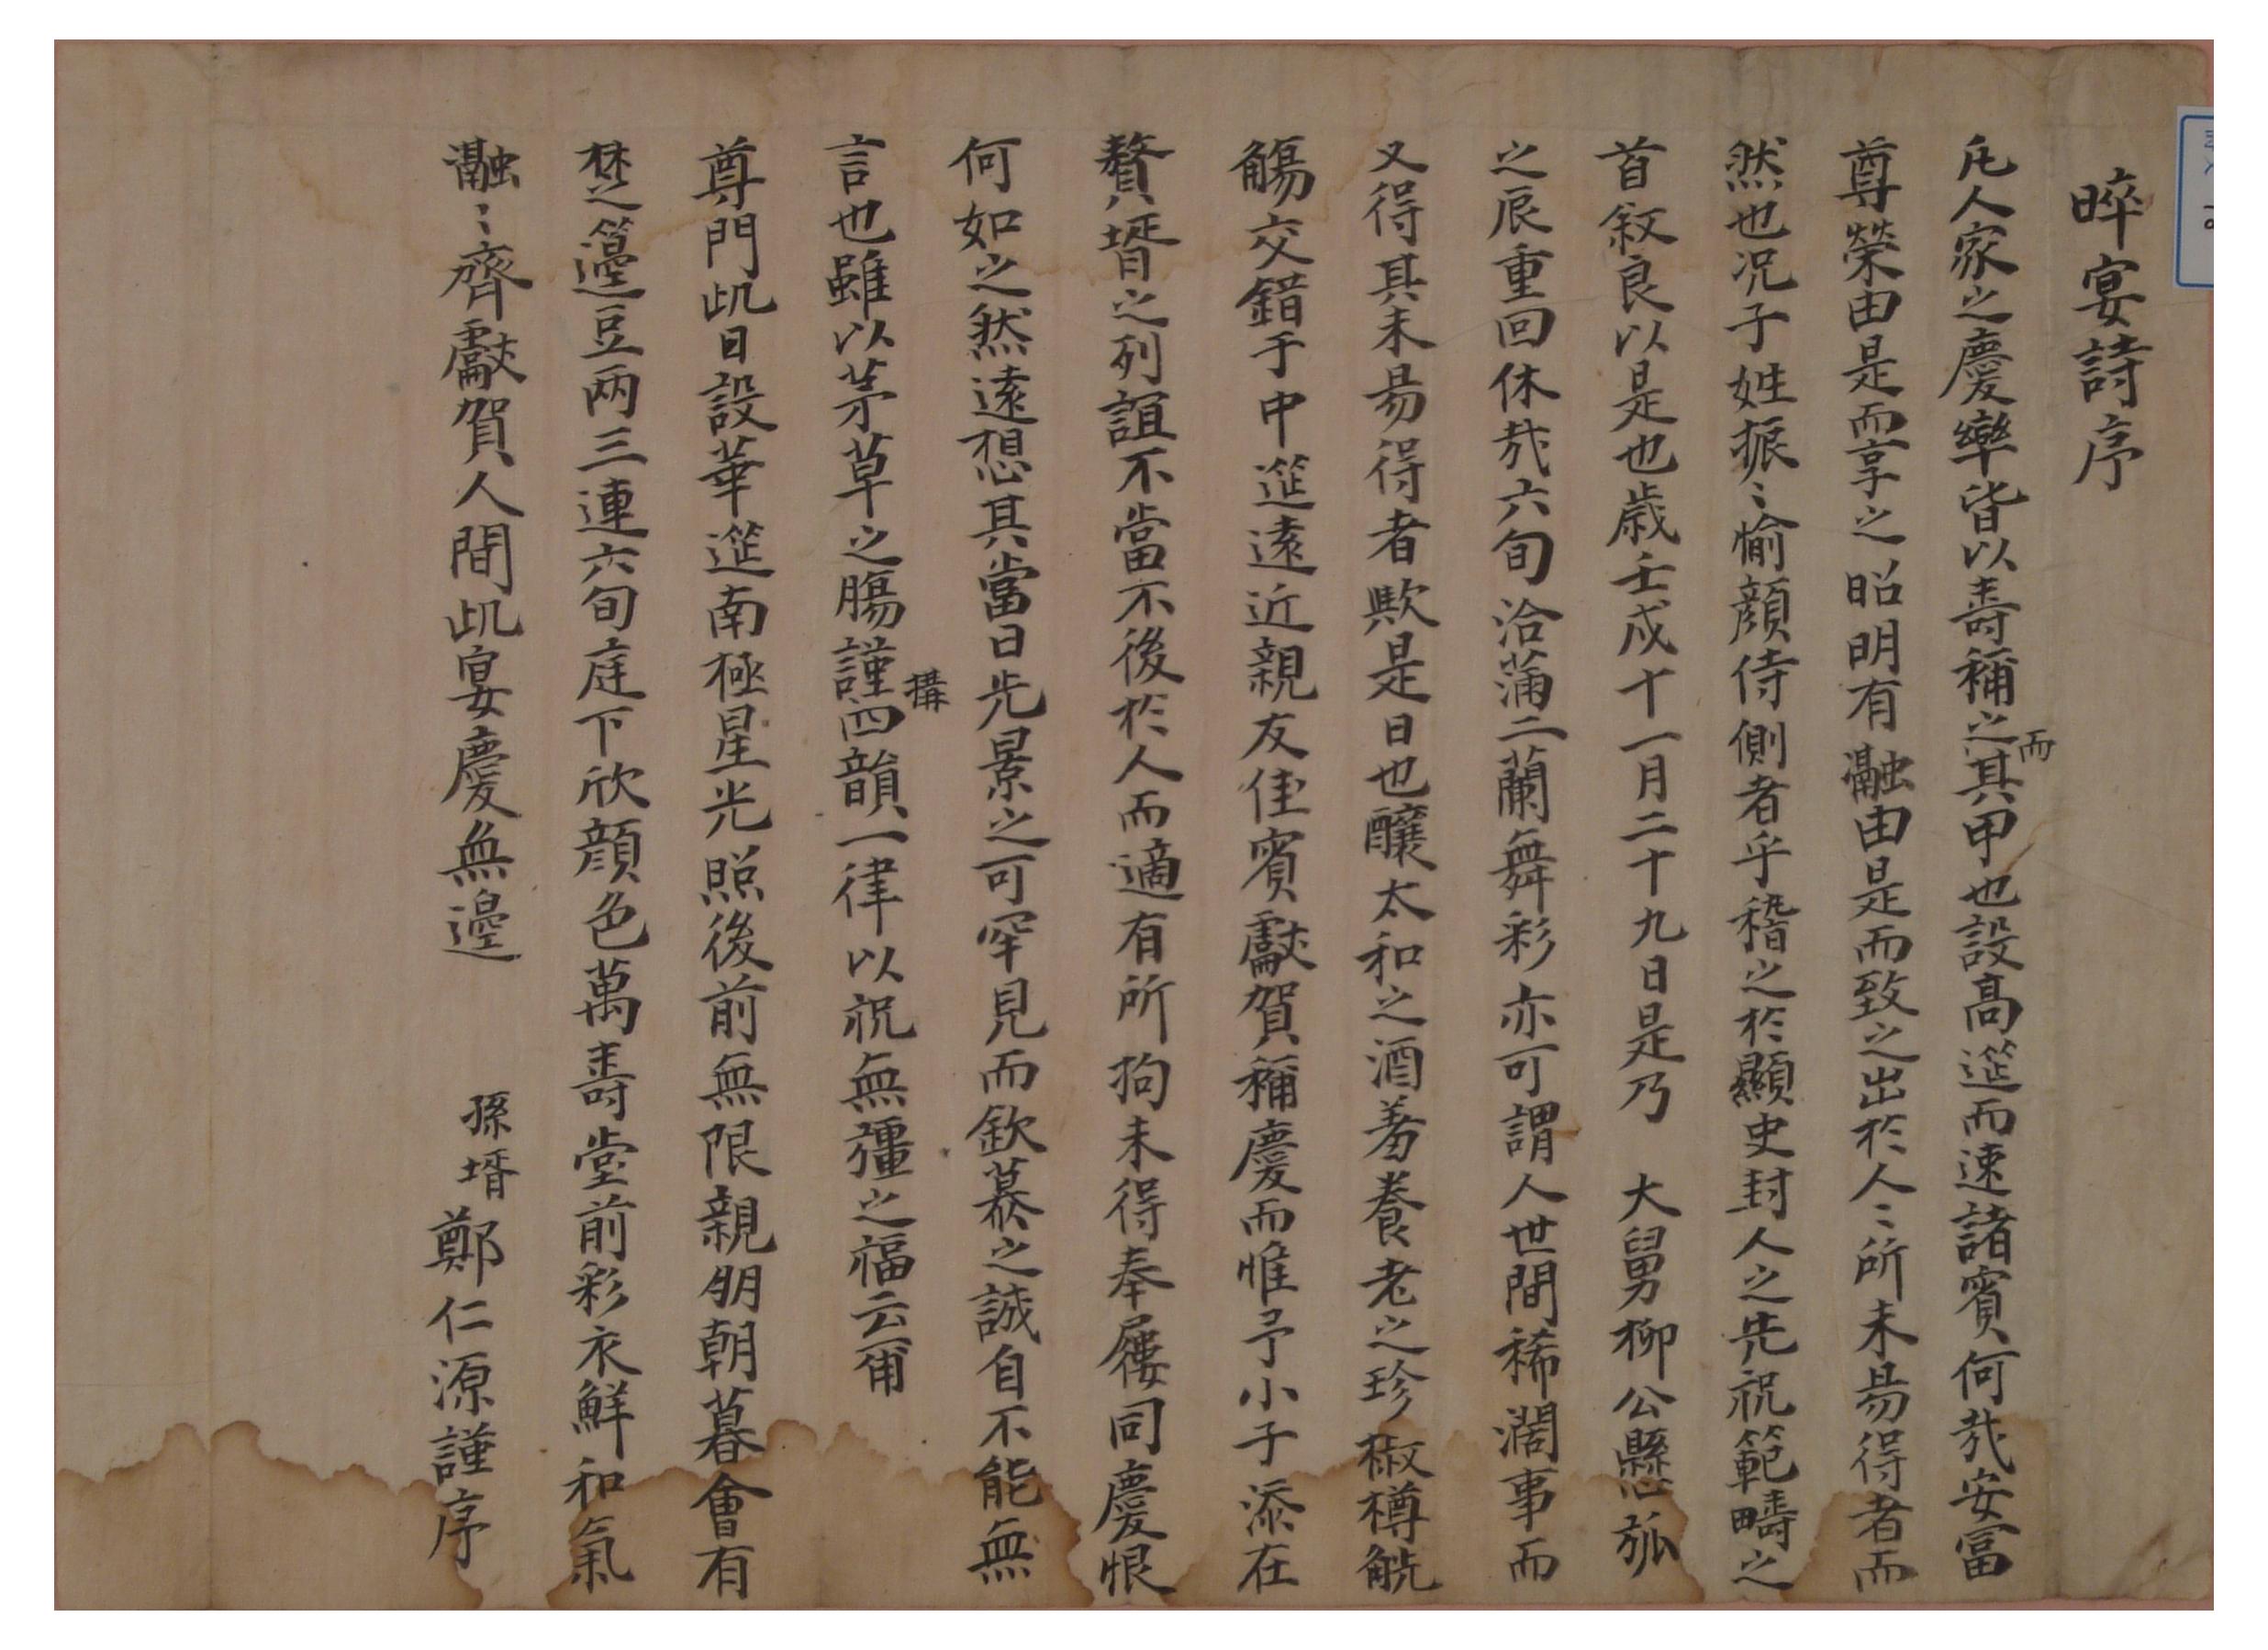 晬宴詩序
凡人家之慶樂皆以壽稱之而其甲也設高筵而速諸賓何哉安富
尊榮由是而享之昭明有瀜由是而致之出於人〻所未易得者而
然也況子姓振〻愉顔侍側者乎稽之於顯史封人之先祝範疇之
首叙良以是也歲壬戌十一月二十九日是乃 大舅柳公懸弧
之辰重回休哉六旬洽蒲二蘭舞彩亦可謂人世間稀濶事而
又得其未易得者歟是日也釀太和之酒羞養老之珍椒樽觥
觴交錯于中筵遠近親友佳賓獻賀稱慶而惟予小子添在
贅壻之列誼不當不後於人而適有所拘未得奉屨同慶恨
何如之然遠想其當日光景之可罕見而欽慕之誠自不能無
言也雖以茅草之腸謹搆四韻一律以祝無彊之福云甭
尊門此日設華筵南極星光照後前無限親朋朝暮會有
楚籩豆兩三連六旬庭下欣顔色萬壽堂前彩衣鮮和氣
瀜〻齊獻賀人間此宴慶無邊 孫壻鄭仁源謹序